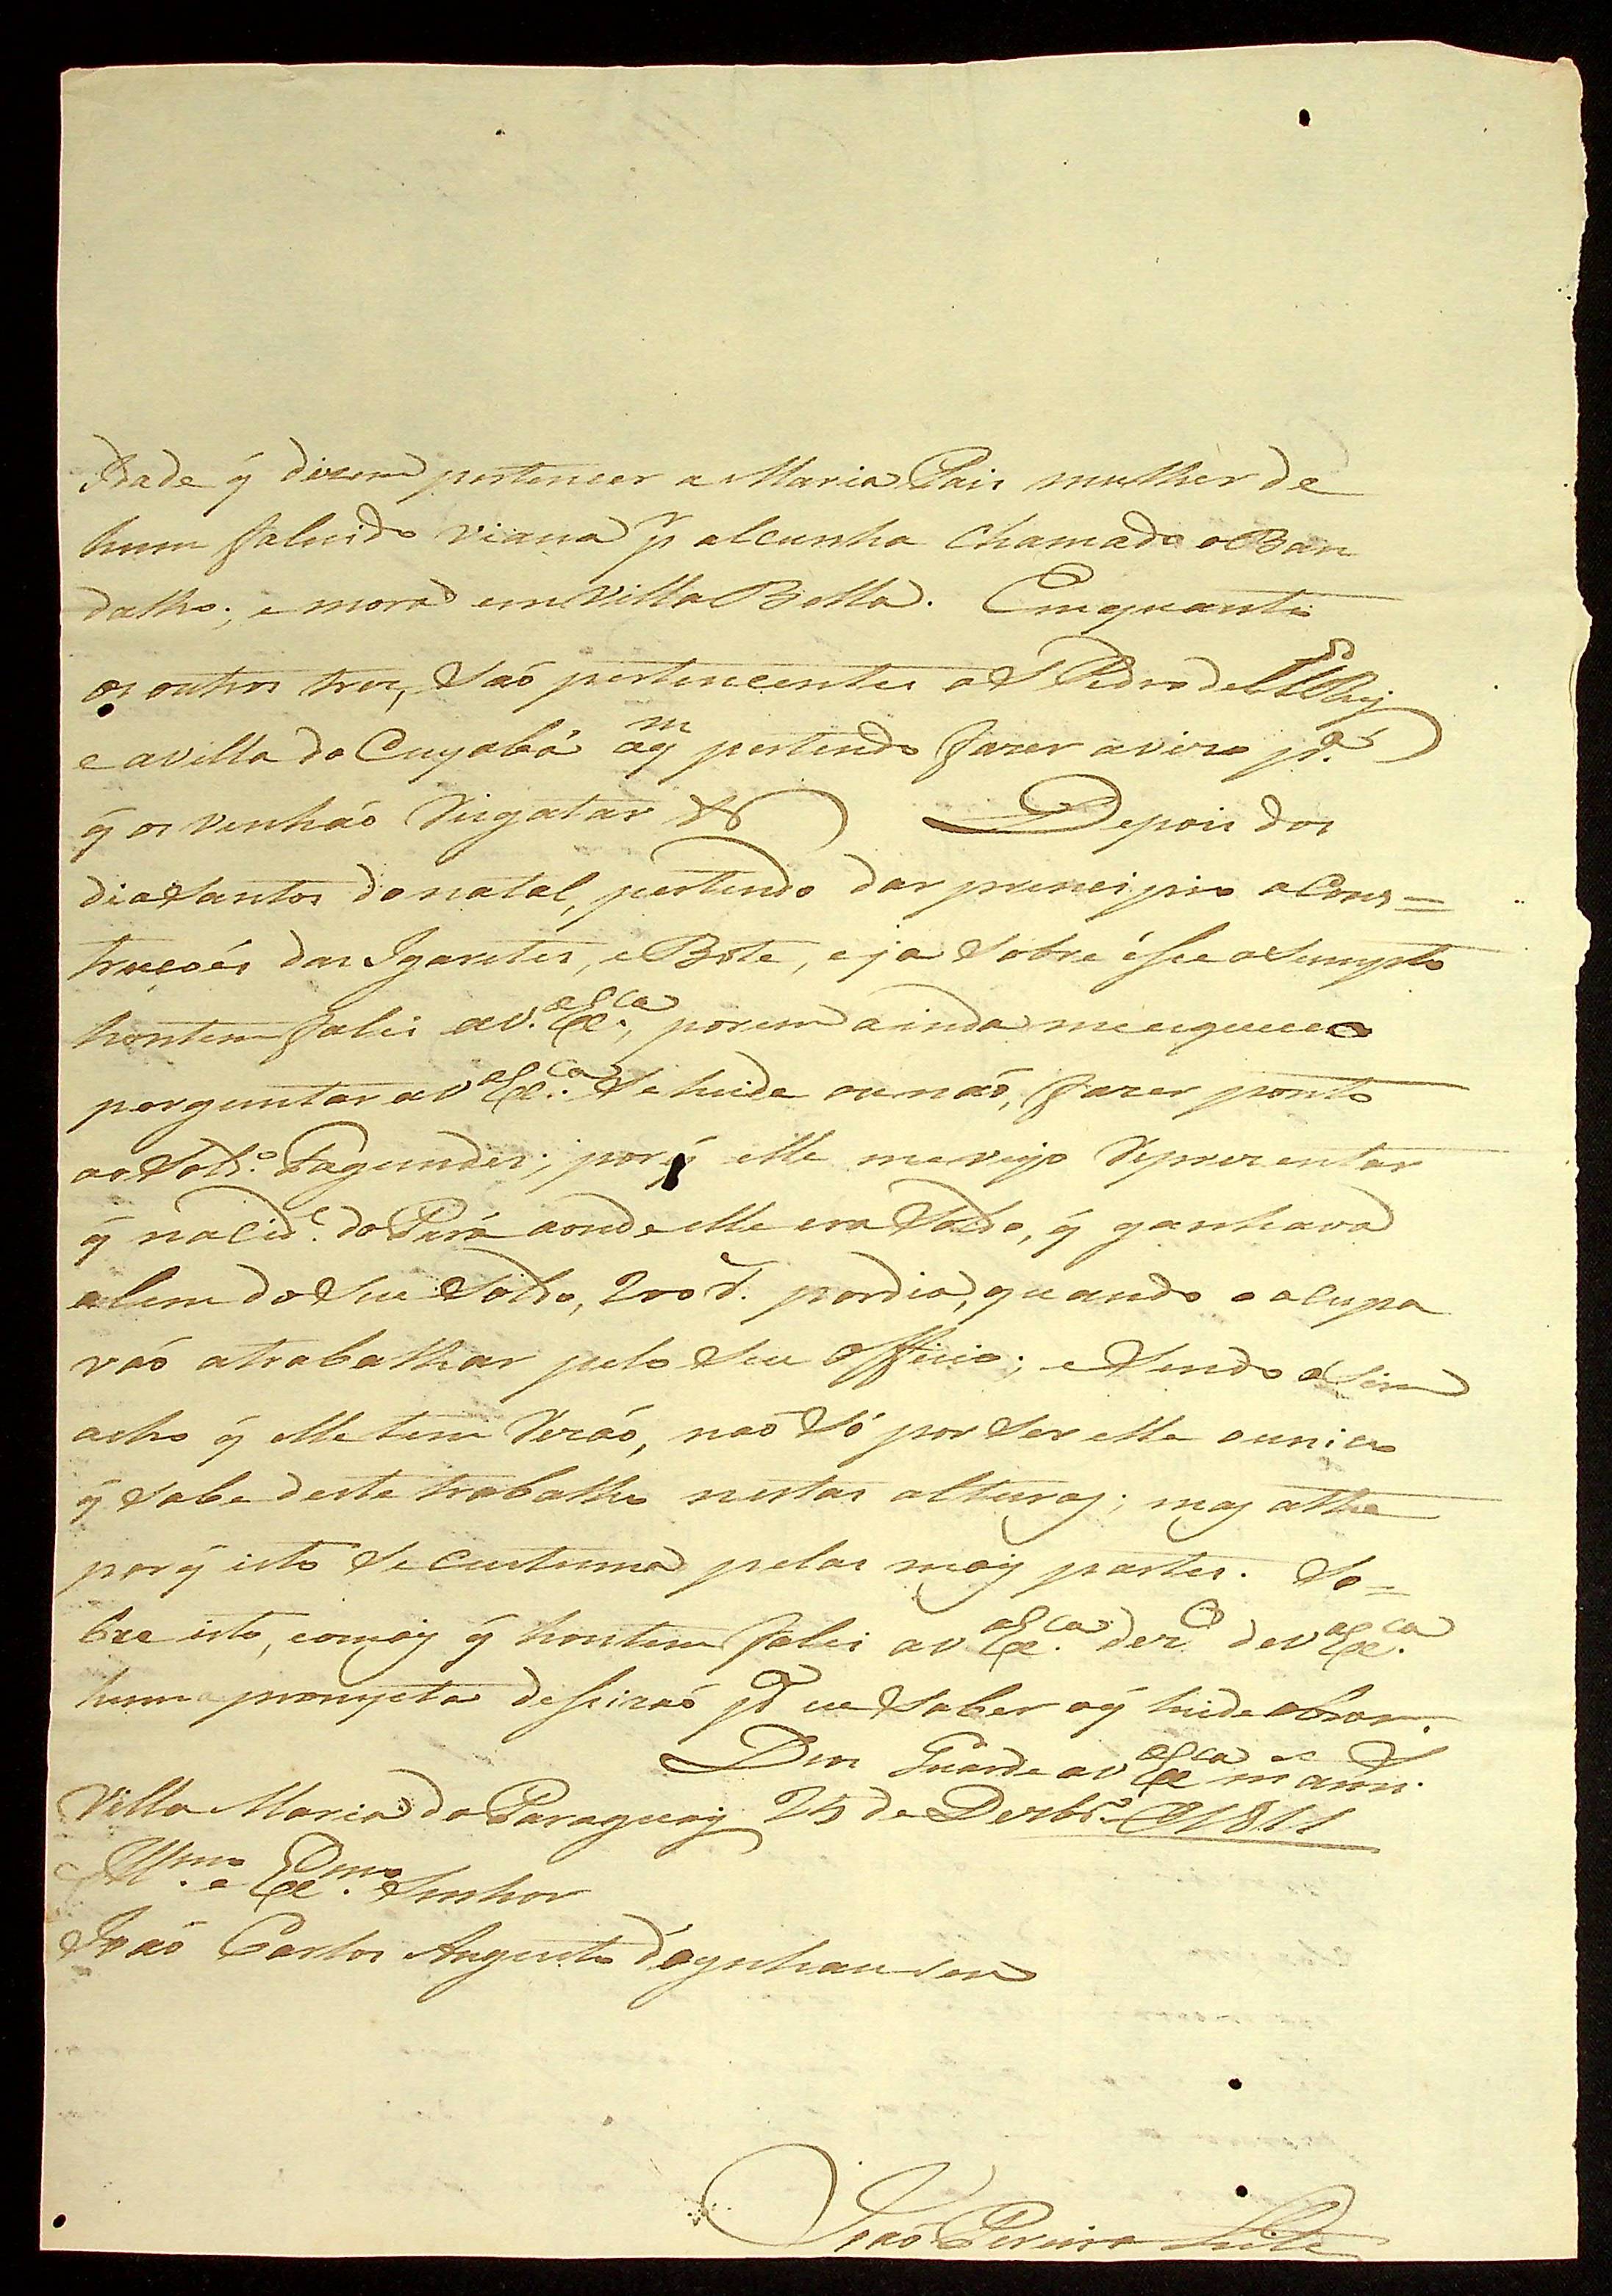 Idade q̃ dizem pertencer a Maria Pais mulher de
hum falecido Viana pr alcunha chamado o Ban
dalho; e mora em Villa Bella. Emquanto
os outros tres, Saõ pertencentes a S Pedro del Rey
e a villa do Cuyabá aqm pertendo fazer avizo pa.
q̃ os venhaõ Risgatar &
Depois dos
dias Santos do natal, pertendo dar principio a Cons=
truçoẽs das Igarites, e Bote, e ja Sobre éste aSumpto
hontem falei a V. Exca., porem ainda me esqueceo
perguntar a V Exca. Se heide ou naõ, fazer ponto
ao Sold.o Fagundes; porq̃ elle me veyo Reprezentar
q̃ na Cide. do Pará aonde elle era Soldo, q̃ ganhava
alem do Seu Soldo, 200 r. por dia, quando o acupa
vaõ atrabalhar pelo Seu officio; e Sendo aSim
acho q̃ elle tem Rezaõ, naõ Só por Ser elle o unico
q̃ Sabe deste trabalho nestas alturas; mas athe
porq̃ isto Se custuma pelas mais partes. So=
bre isto, e o mais q̃ hontem falei a V Exca. dezo de V Exca.
huma prompta desizaõ pa eu Saber oq̃ heide obrar.
Deos Guarde a V Exca ms anns.
Villa Maria do Paraguay 25 de Dezbro. de 1811
Illmo. e Exmo. Senhor
Joaõ Carlos Augusto d'Oynhausen
Joaõ Pereira Leite